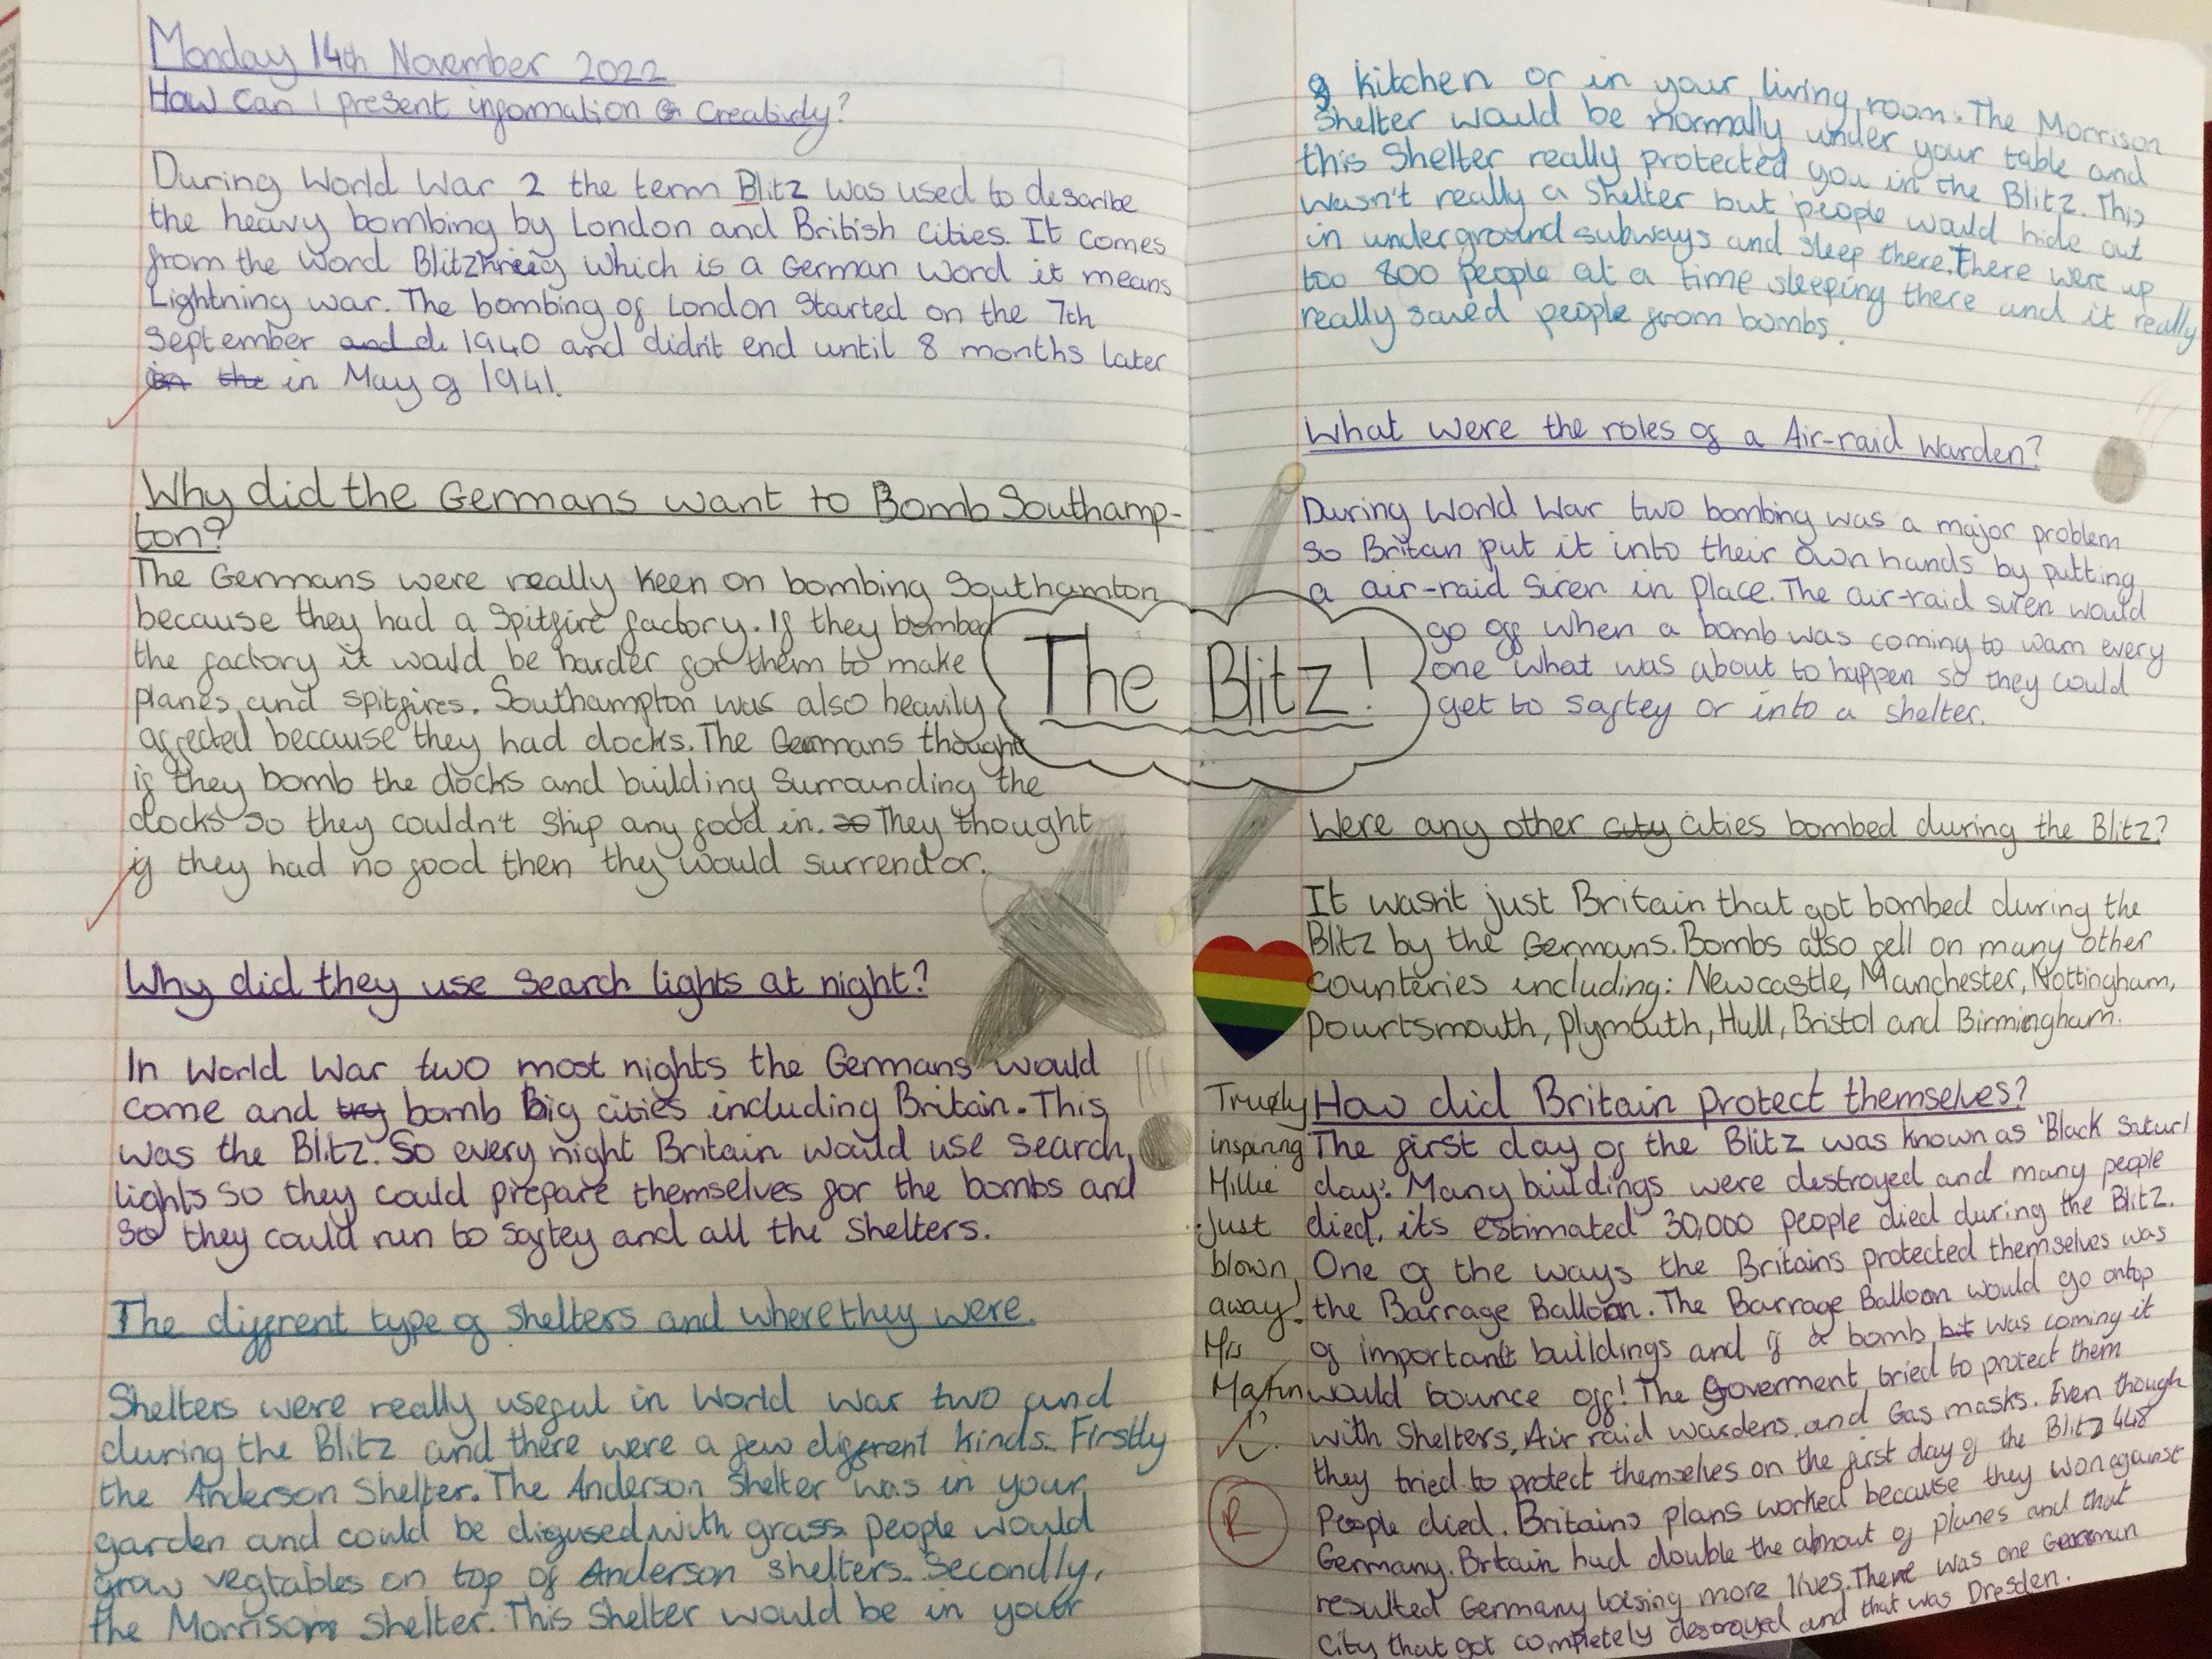 Monday 14th November 2022
How Can I present information Creatividy?
During World War 2 the term Blitz was used to describe
the heavy bombing by London and British Cities. It comes
from the word Blitzkrieg which is a German word it means
Lightning war. The bombing of London Started on the 7th
September and d 1940 and didn't end until 8 months later
on the in May of 1941.
Why did the Germans want to Bomb Southamp-
ton?
The Germans were really keen on bombing Southamton
because they had a Spitfire factory. If they bombed
the factory it would be harder for them to make
planes and spitfires. Southampton was also heavily
affected because they had docks. The Germans thought
if they bomb the docks and building Surrounding the
docks so they couldn't Ship any food in. so They thought
if they had no food then they would surrendor.
Why did they use Search lights at night?
In World War two most nights the Germans would
come and try bomb big cities including Britain. This
was the Blitz. So every night Britain would use search
lights so they could prepare themselves for the bombs and
so they could run to saftey and all the Shelters.
The diffrent type of Shelters and where they were.
Shelters were really useful in World War two and
during the Blitz and there were a few different kinds. Firstly
the Anderson Shelter. The Anderson Shelter was in your
garden and could be disgused with grass people would
grow vegtables on top of Anderson shelters. Secondly,
the Morrison Shelter. This Shelter would be in your
kitchen or in your living room. The Morrison
Shelter would be normally under your table and
this Shelter really protected you in the Blitz. This
wasn't really a Shelter but people would hide out
in underground subways and sleep there. There were up
too 800 people at a time sleeping there and it really
really saved people from bombs.
What were the roles of a Air-raid Warden?
During World War two bombing was a major problem
so Britan put it into their own hands by putting
a air-raid Siren in Place. The air-raid siren would
go off when a bomb was coming to warn every
one what was about to happen so they could
get to saftey or into a shelter.
The Blitz!
Were any other city cities bombed during the Blitz?
It wasn't just Britain that got bombed during the
Blitz by the Germans. Bombs also fell on many other
Counteries including: Newcastle, Manchester, Nottingham,
Pourtsmouth, Plymouth, Hull, Bristol and Birmingham.
How did Britain protect themselves?
The first day of the Blitz was known as 'Black Satur
day'. Many buildings were destroyed and many people
died, its estimated 30,000 people died during the Blitz.
One of the ways the Britains protected themselves was
the Barrage Balloon. The Barrage Balloon would go ontop
of important buildings and if a bomb bit was coming it
would bounce off! The Goverment tried to protect them
with Shelters, Air raid wardens and Gas masks. Even though
they tried to protect themselves on the first day of the Blitz 448
People died. Britains plans worked because they won against
Germany. Britain had double the abnout of planes and that
resulted Germany loising more lives. There was one German
City that got completely destroyed and that was Dresden.
Truely
inspiring
Millie
Just
blown
away!
Mrs
Martin
R